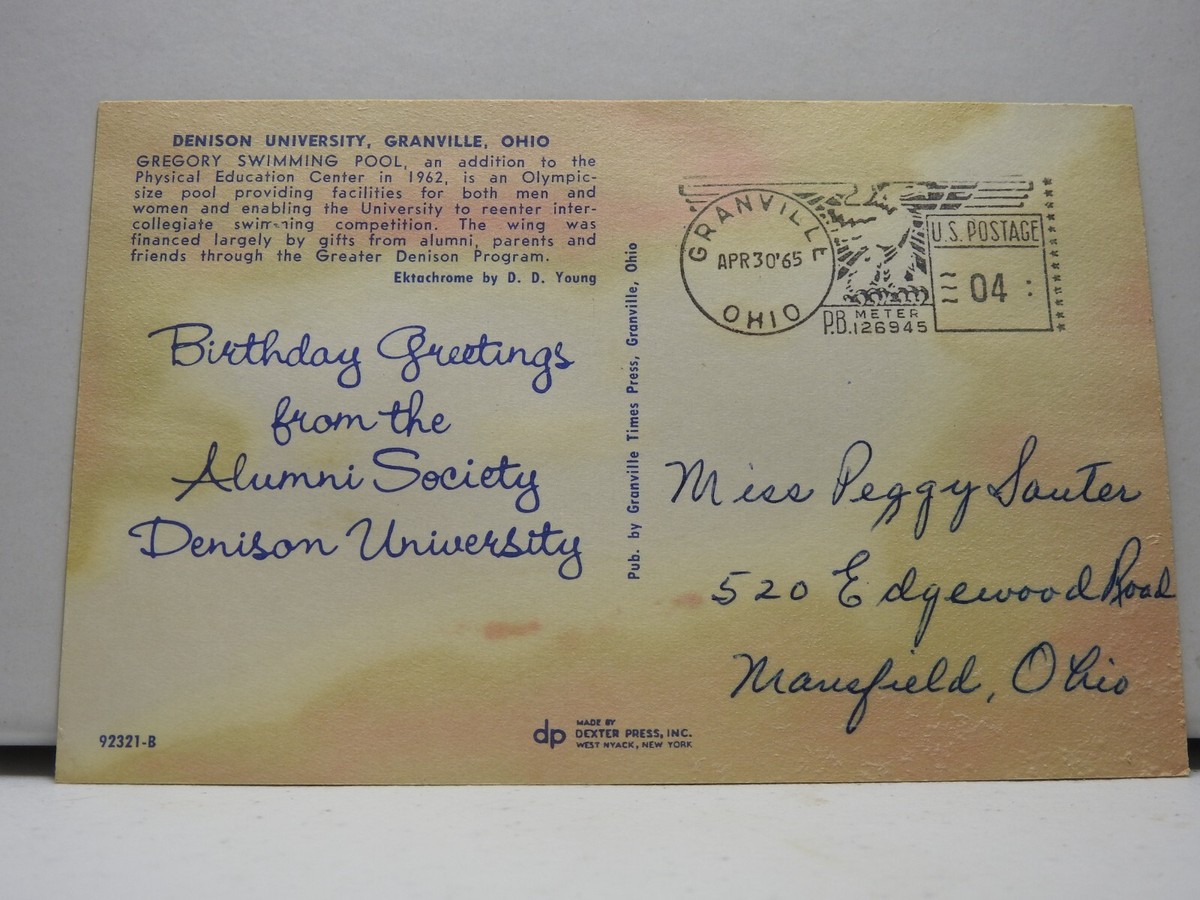 DENISON UNIVERSITY, GRANVILLE, OHIO
GREGORY SWIMMING POOL, an addition to the
Physical Education Center in 1962, is an Olympic-
size pool providing facilities for both men and
women and enabling the University to reenter inter-
collegiate swimming competition. The wing was
financed largely by gifts from alumni, parents and
friends through the Greater Denison Program.
Ektachrome by D. D. Young
Birthday Greetings
from the
Alumni Society
Denison University
92321-B
Pub. by Granville Times Press, Granville, Ohio
dp
MADE BY
DEXTER PRESS, INC.
WEST NYACK, NEW YORK
GRANVILLE
APR30'65
OHIO
U.S. POSTAGE
04
P.B. METER
126945
Miss Peggy Sauter
520 Edgewood Road
Mansfield, Ohio